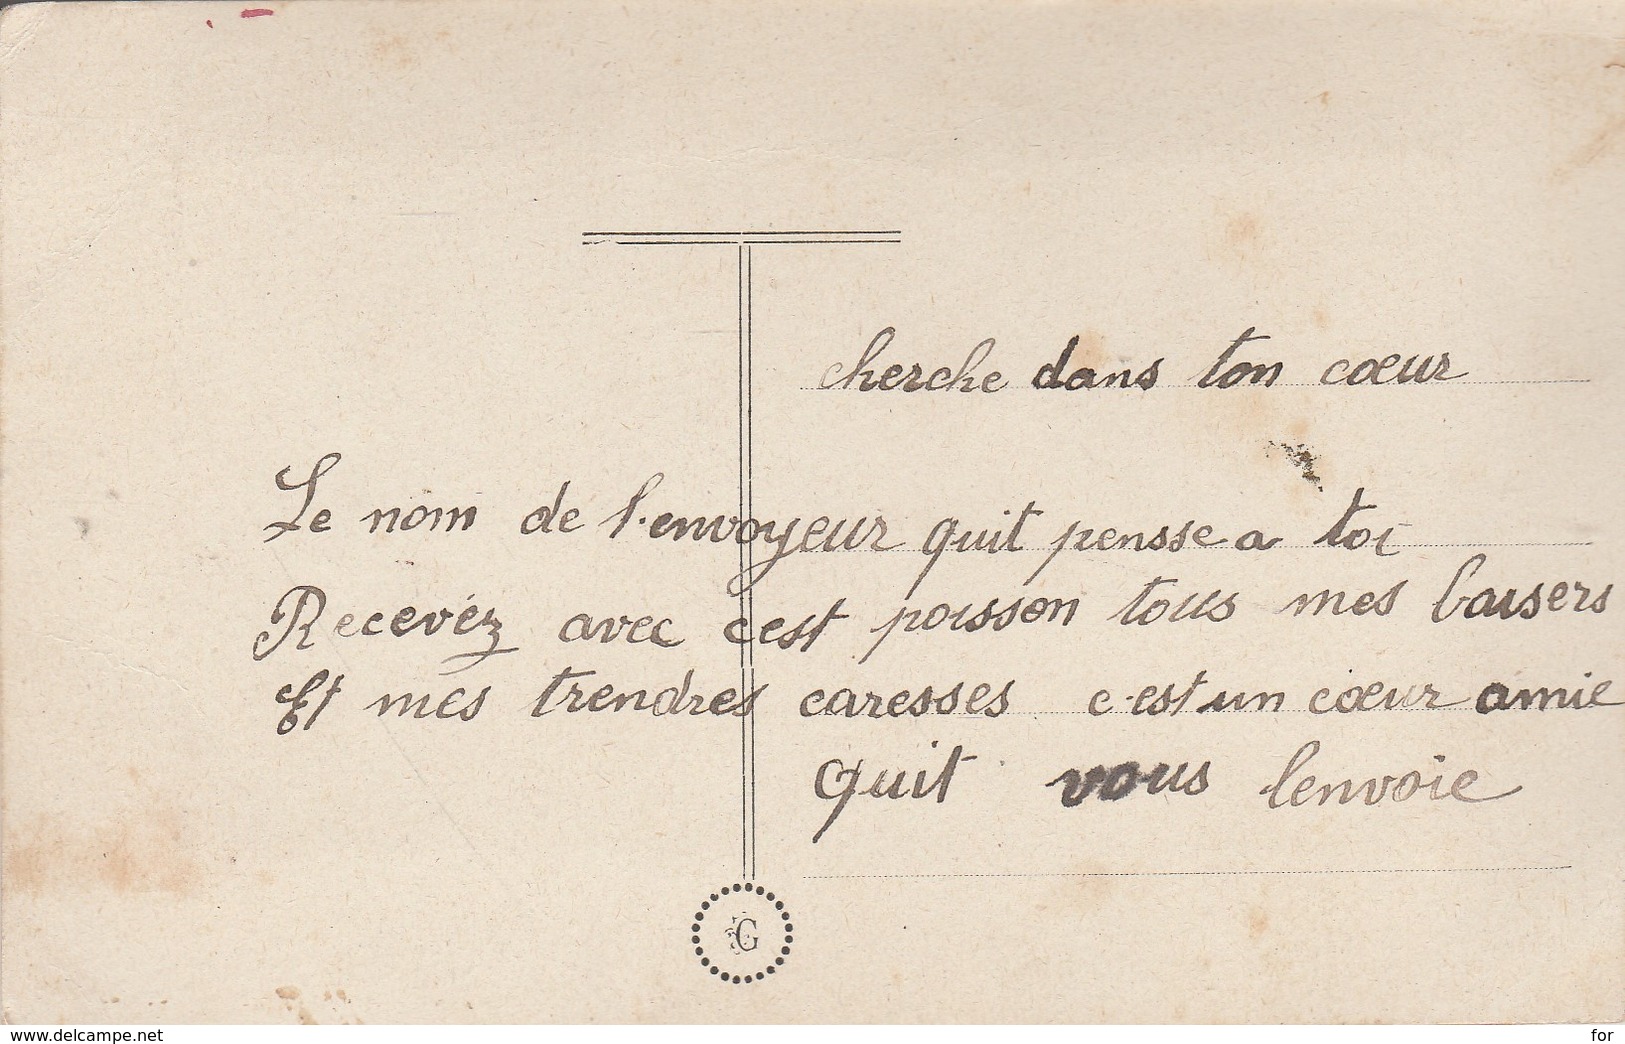 cherche dans ton cœur
Le nom de l'envoyeur quit pensse a toi
Recevéz avec c'est poisson tous mes baisers
Et mes trendres caresses c'est un cœur amie
quit vous lenvoie
G
www.delcampe.net
for